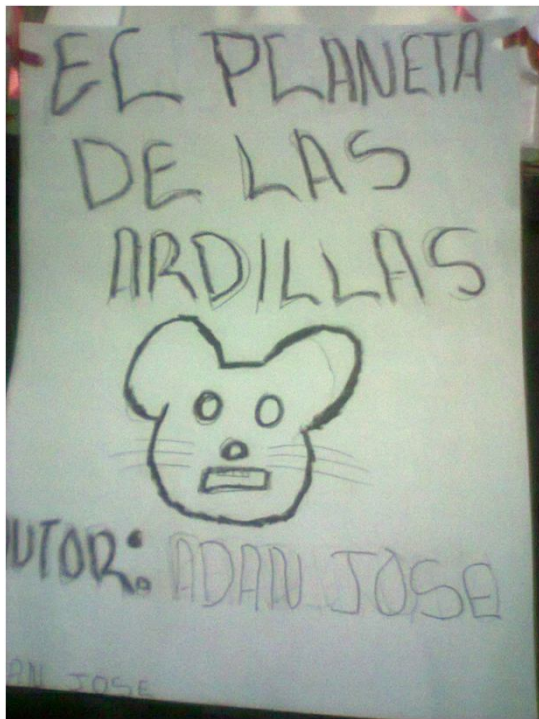 EL PLANETA
DE LAS
ARDILLAS
UTOR: ADAN JOSE
AN JOSE